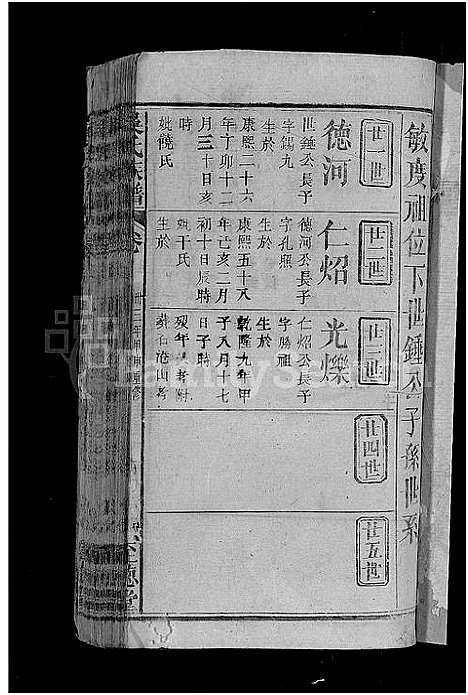 敏度祖位下世錘公子孫世系
廿一世
德河
世錘公長子
字錫九
生於
康熙二十六
年丁卯十二
月三十日亥
時
妣饒氏
廿二世
仁炤
德河公長子
字孔照
生於
康熙五十八
年己亥二月
初十日辰時
妣干氏
生於
廿三世
光爍
仁炤公長子
字勝祖
生於
乾隆九年甲
子八月十七
日子時
歿年失考附
葬石滄山考
廿四世
廿五世
吳氏族譜
卷
至德堂